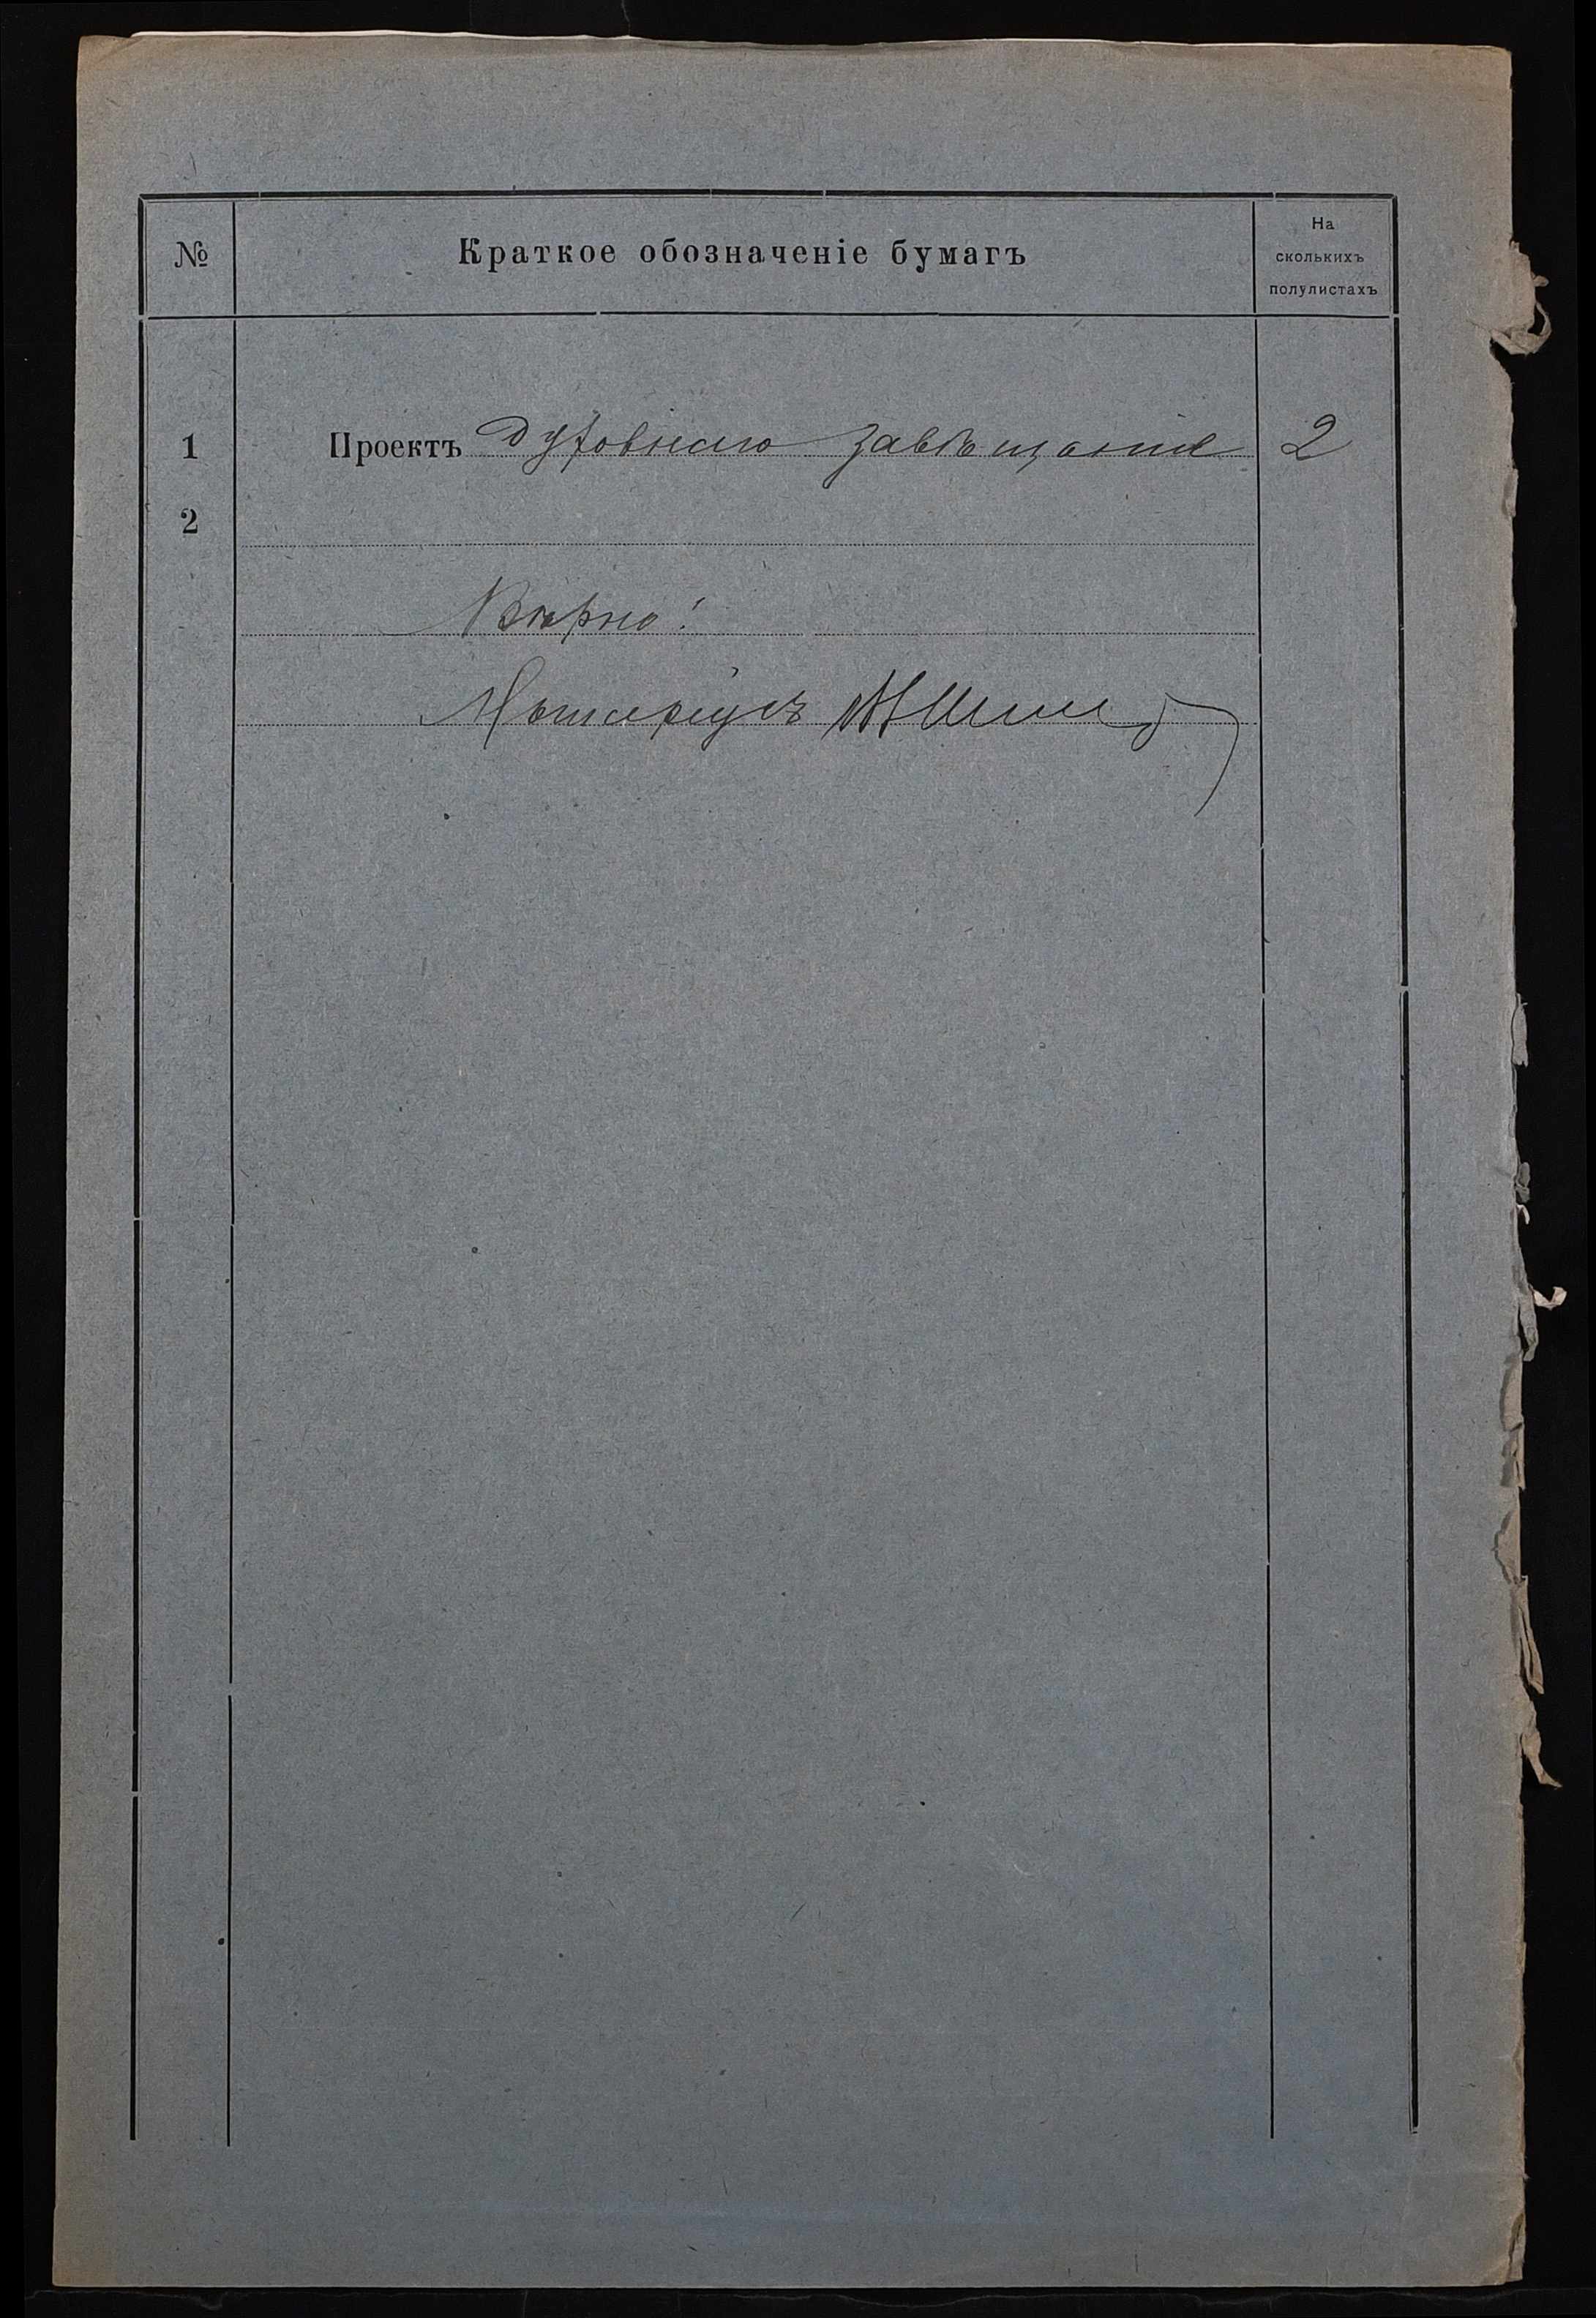 № Краткое обозначеніе бумагъ На
сколькихъ
полулистахъ
1 Проектъ духовнаго завѣщанія 2
2
Вѣрно!
Нотаріусъ